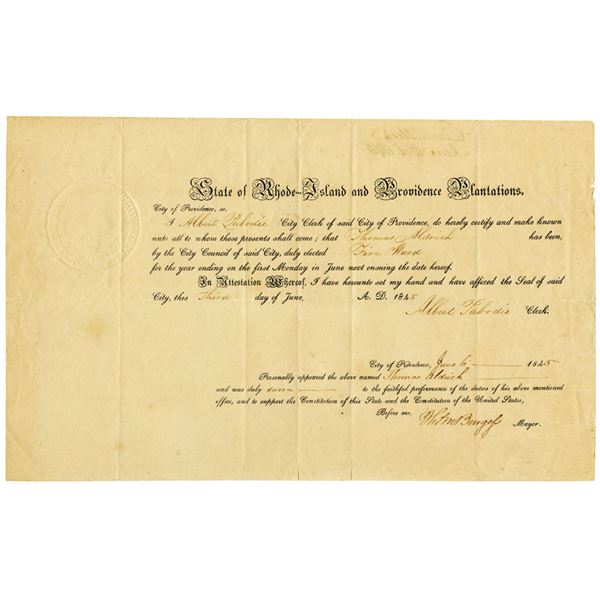 State of Rhode-Island and Providence Plantations.
City of Providence, sc.
I Albert Pabodie City Clerk of said City of Providence, do hereby certify and make known
unto all to whom these presents shall come; that Thomas Aldrich has been,
by the City Council of said City, duly elected Fire Ward
for the year ending on the first Monday in June next ensuing the date hereof.
In Attestation Whereof, I have hereunto set my hand and have affixed the Seal of said
City, this Third day of June, A. D. 1845
Albert Pabodie Clerk.
City of Providence, June 6 1845
Personally appeared the above named Thomas Aldrich
and was duly sworn to the faithful performance of the duties of his above mentioned
office, and to support the Constitution of this State and the Constitution of the United States,
Before me, Thos M Burgess Mayor.